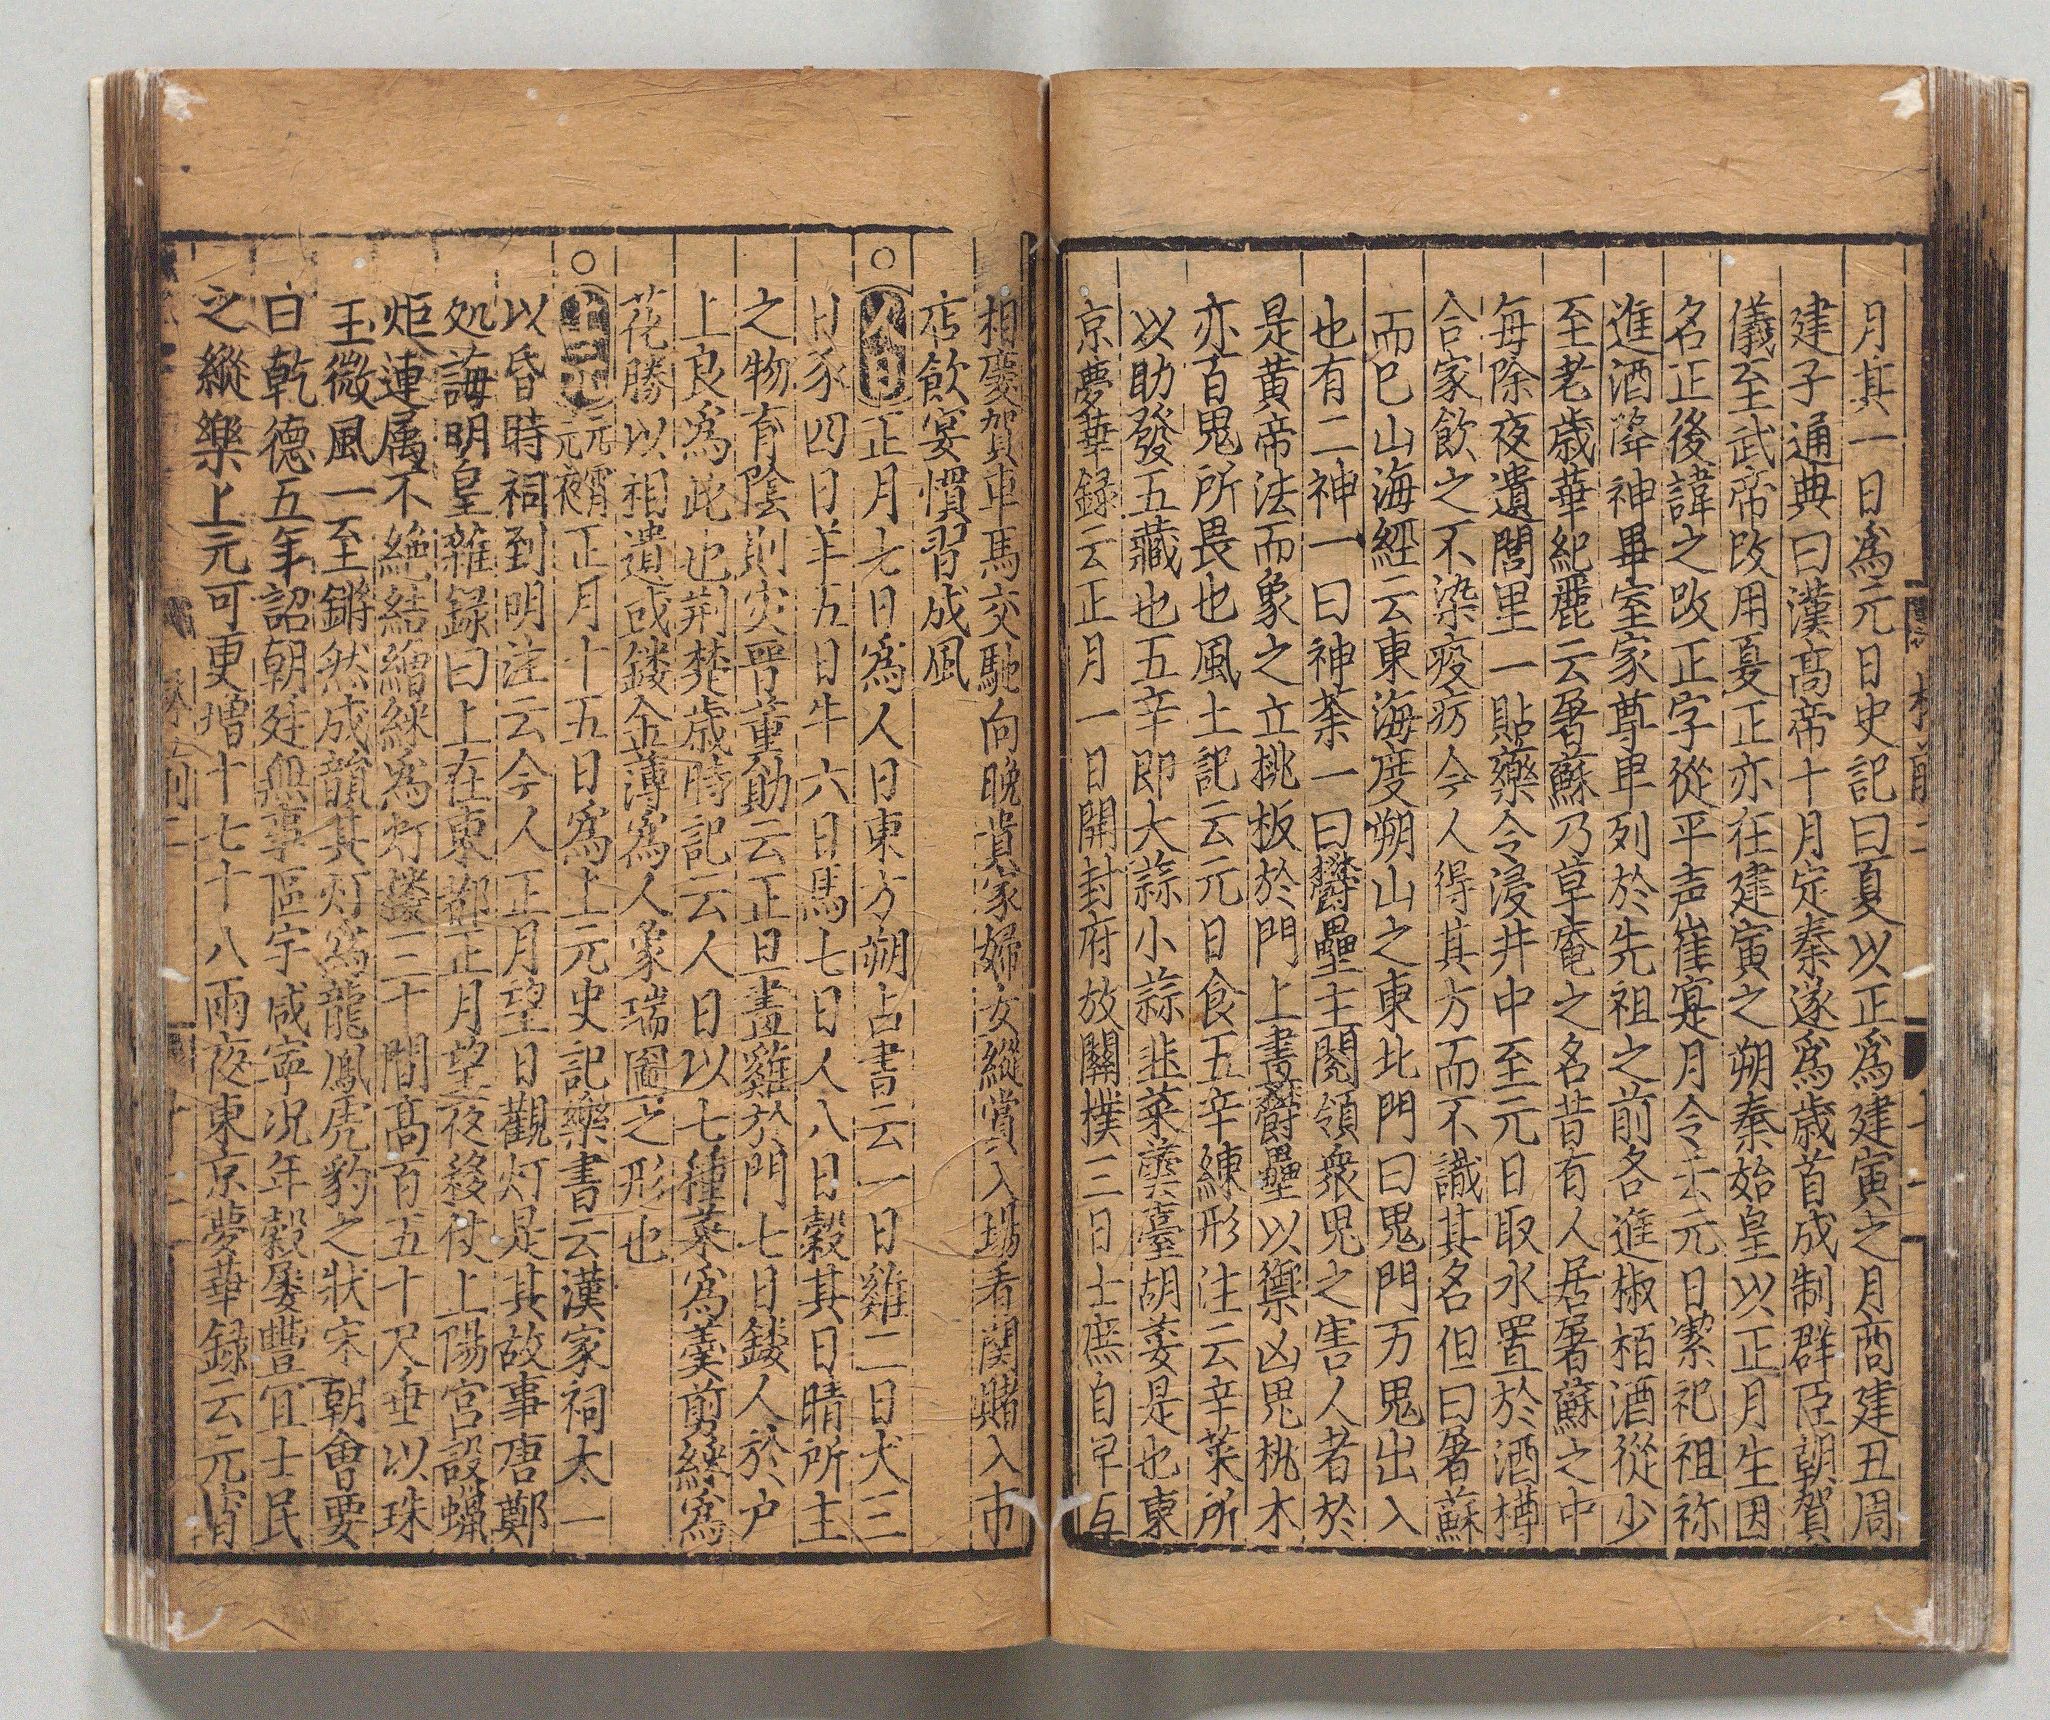 月其一日爲元日史記曰夏以正爲建寅之月商建丑周
建子通典曰漢高帝十月定秦遂爲歳首成制群臣朝賀
儀至武帝改用夏正亦在建寅之朔秦始皇以正月生因
名正後諱之改正字從平声崔寔月令云元日潔祀祖祢
進酒降神畢室家尊卑列於先祖之前各進椒栢酒從少
至老歳華紀麗云屠蘇乃草菴之名昔有人居屠蘇之中
每除夜遺閭里一貼藥令浸井中至元日取水置於酒樽
合家飲之不染疫疠今人得其方而不識其名但曰屠蘇
而巳山海經云東海度朔山之東北門曰鬼門万鬼出入
也有二神一曰神荼一曰欝壘主閱領衆鬼之害人者於
是黃帝法而象之立桃板於門上畫欝壘以禦凶鬼桃木
亦百鬼所畏也風土記云元日食五辛練形注云辛菜所
以助發五藏也五辛即大蒜小蒜韭菜蕓薹胡荽是也東
京夢華録云正月一日開封府放關撲三日士庶自早互
相慶賀車馬交馳向晚貴家婦女縱賞入場看関賭入市
店飲宴慣習成風
○人日正月七日爲人日東方朔占書云一日雞二日犬三
日豕四日羊五日牛六日馬七日人八日穀其日晴所主
之物育陰則灾晋董勛云正旦畫雞於門七日鏤人於户
上良爲此也荆楚歳時記云人日以七種菜爲羹剪綵爲
花勝以相遺或鏤金薄爲人象瑞圖之形也
○上元元霄元夜正月十五日爲上元史記樂書云漢家祠太一
以昏時祠到明注云今人正月望日觀灯是其故事唐鄭
処誨明皇雜録曰上在東都正月望夜移仗上陽宮設蠟
炬連属不絶結繒綵爲灯樓三十間高百五十尺垂以珠
玉微風一至鏘然成韻其灯爲龍鳳虎豹之狀宋朝會要
曰乾德五年詔朝廷無事區宇咸寧况年穀屡豐宜士民
之縱樂上元可更增十七十八兩夜東京夢華録云元宵